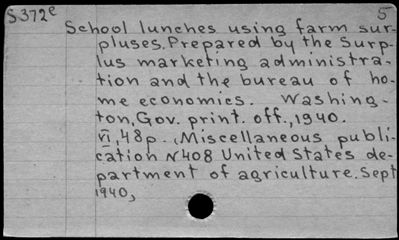 S372e 5
School lunches using farm sur-
pluses. Prepared by the Surp-
lus marketing administra-
tion and the bureau of ho-
me economics. Washing-
ton, Gov. print. off., 1940.
VI, 48p. (Miscellaneous publi-
cation №408 United States de-
partment of agriculture. Sept
1940)